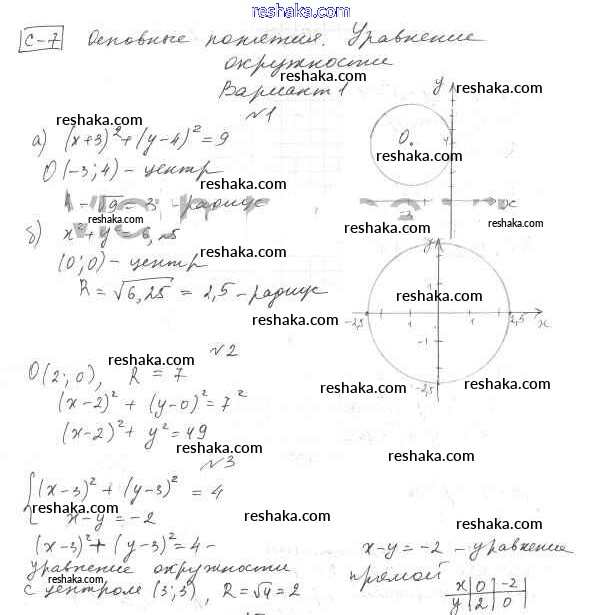 reshaka.com
С-7 Основные понятия. Уравнение
окружности
reshaka.com
Вариант 1
№1
reshaka.com
а) (x+3)² + (y-4)² = 9
O(-3; 4) - центр
reshaka.com
R = √9 = 3 - радиус
reshaka.com
б) x² + y² = 6,25
(0; 0) - центр
reshaka.com
R = √6,25 = 2,5 - радиус
reshaka.com
y
O.
4
reshaka.com
-3
x
reshaka.com
y
reshaka.com
-2,5
1
1
2,5
x
-1
-2,5
№2
reshaka.com
O(2; 0), R = 7
reshaka.com
(x-2)² + (y-0)² = 7²
(x-2)² + y² = 49
reshaka.com
№3
reshaka.com
(x-3)² + (y-3)² = 4
x-y = -2
reshaka.com
reshaka.com
(x-3)² + (y-3)² = 4 -
уравнение окружности
с центром (3; 3), R = √4 = 2
reshaka.com
reshaka.com
reshaka.com
x-y = -2 - уравнение
прямой
x 0 -2
y 2 0
reshaka.com